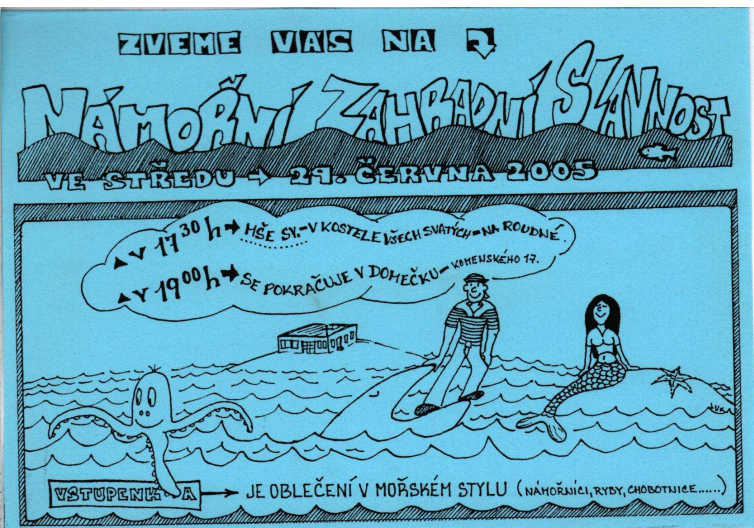 ZVEME VÁS NA
NÁMOŘNÍ ZAHRADNÍ SLAVNOST
VE STŘEDU → 29. ČERVNA 2005
▲ V 17³⁰ h → MŠE SV. - V KOSTELE VŠECH SVATÝCH - NA ROUDNÉ.
▲ V 19⁰⁰ h → SE POKRAČUJE V DOMEČKU - KOMENSKÉHO 17.
VSTUPENKA → JE OBLEČENÍ V MOŘSKÉM STYLU (NÁMOŘNÍCI, RYBY, CHOBOTNICE......)